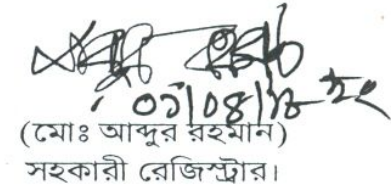 ০১/০৪/১৮ ইং
(মোঃ আব্দুর রহমান)
সহকারী রেজিস্ট্রার।